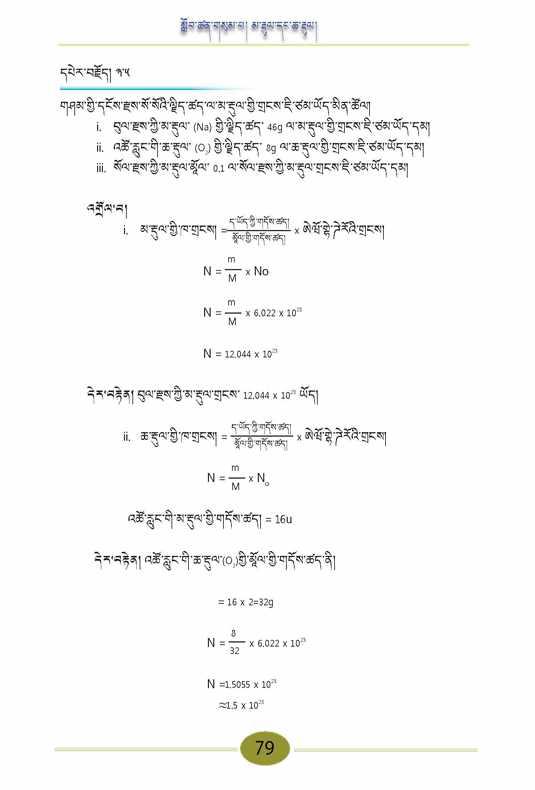 སློབ་ཚན་གསུམ་པ། མ་རྡུལ་དང་ཆ་རྡུལ།
དཔེར་བརྗོད། ༣.༥
གཤམ་གྱི་དངོས་རྫས་སོ་སོའི་ལྗིད་ཚད་ལ་མ་རྡུལ་གྱི་གྲངས་ཇི་ཙམ་ཡོད་མིན་ཚོལ།
i. བུལ་རྫས་ཀྱི་མ་རྡུལ་ (Na) གྱི་ལྗིད་ཚད་ 46g ལ་མ་རྡུལ་གྱི་གྲངས་ཇི་ཙམ་ཡོད་དམ།
ii. འཚོ་རླུང་གི་ཆ་རྡུལ་ (O₂) གྱི་ལྗིད་ཚད་ 8g ལ་ཆ་རྡུལ་གྱི་གྲངས་ཇི་ཙམ་ཡོད་དམ།
iii. སོལ་རྫས་ཀྱི་མ་རྡུལ་མཱོལ་ 0.1 ལ་སོལ་རྫས་ཀྱི་མ་རྡུལ་གྲངས་ཇི་ཙམ་ཡོད་དམ།
འགྲོལ་བ།
i. མ་རྡུལ་གྱི་ཁ་གྲངས། = ད་ཡོད་ཀྱི་གདོས་ཚད། / མཱོལ་གྱི་གདོས་ཚད། x ཨེ་ཝོ་སྒེ་ཌེ་རོའི་གྲངས།
N = m / M x No
N = m / M x 6.022 x 10²³
N = 12.044 x 10²³
དེར་བརྟེན། བུལ་རྫས་ཀྱི་མ་རྡུལ་གྲངས་ 12.044 x 10²³ ཡོད།
ii. ཆ་རྡུལ་གྱི་ཁ་གྲངས། = ད་ཡོད་ཀྱི་གདོས་ཚད། / མཱོལ་གྱི་གདོས་ཚད། x ཨེ་ཝོ་སྒེ་ཌེ་རོའི་གྲངས།
N = m / M x N₀
འཚོ་རླུང་གི་མ་རྡུལ་གྱི་གདོས་ཚད། = 16u
དེར་བརྟེན། འཚོ་རླུང་གི་ཆ་རྡུལ་(O₂)གྱི་མཱོལ་གྱི་གདོས་ཚད་ནི།
= 16 x 2=32g
N = 8 / 32 x 6.022 x 10²³
N =1.5055 x 10²³
≈1.5 x 10²³
79